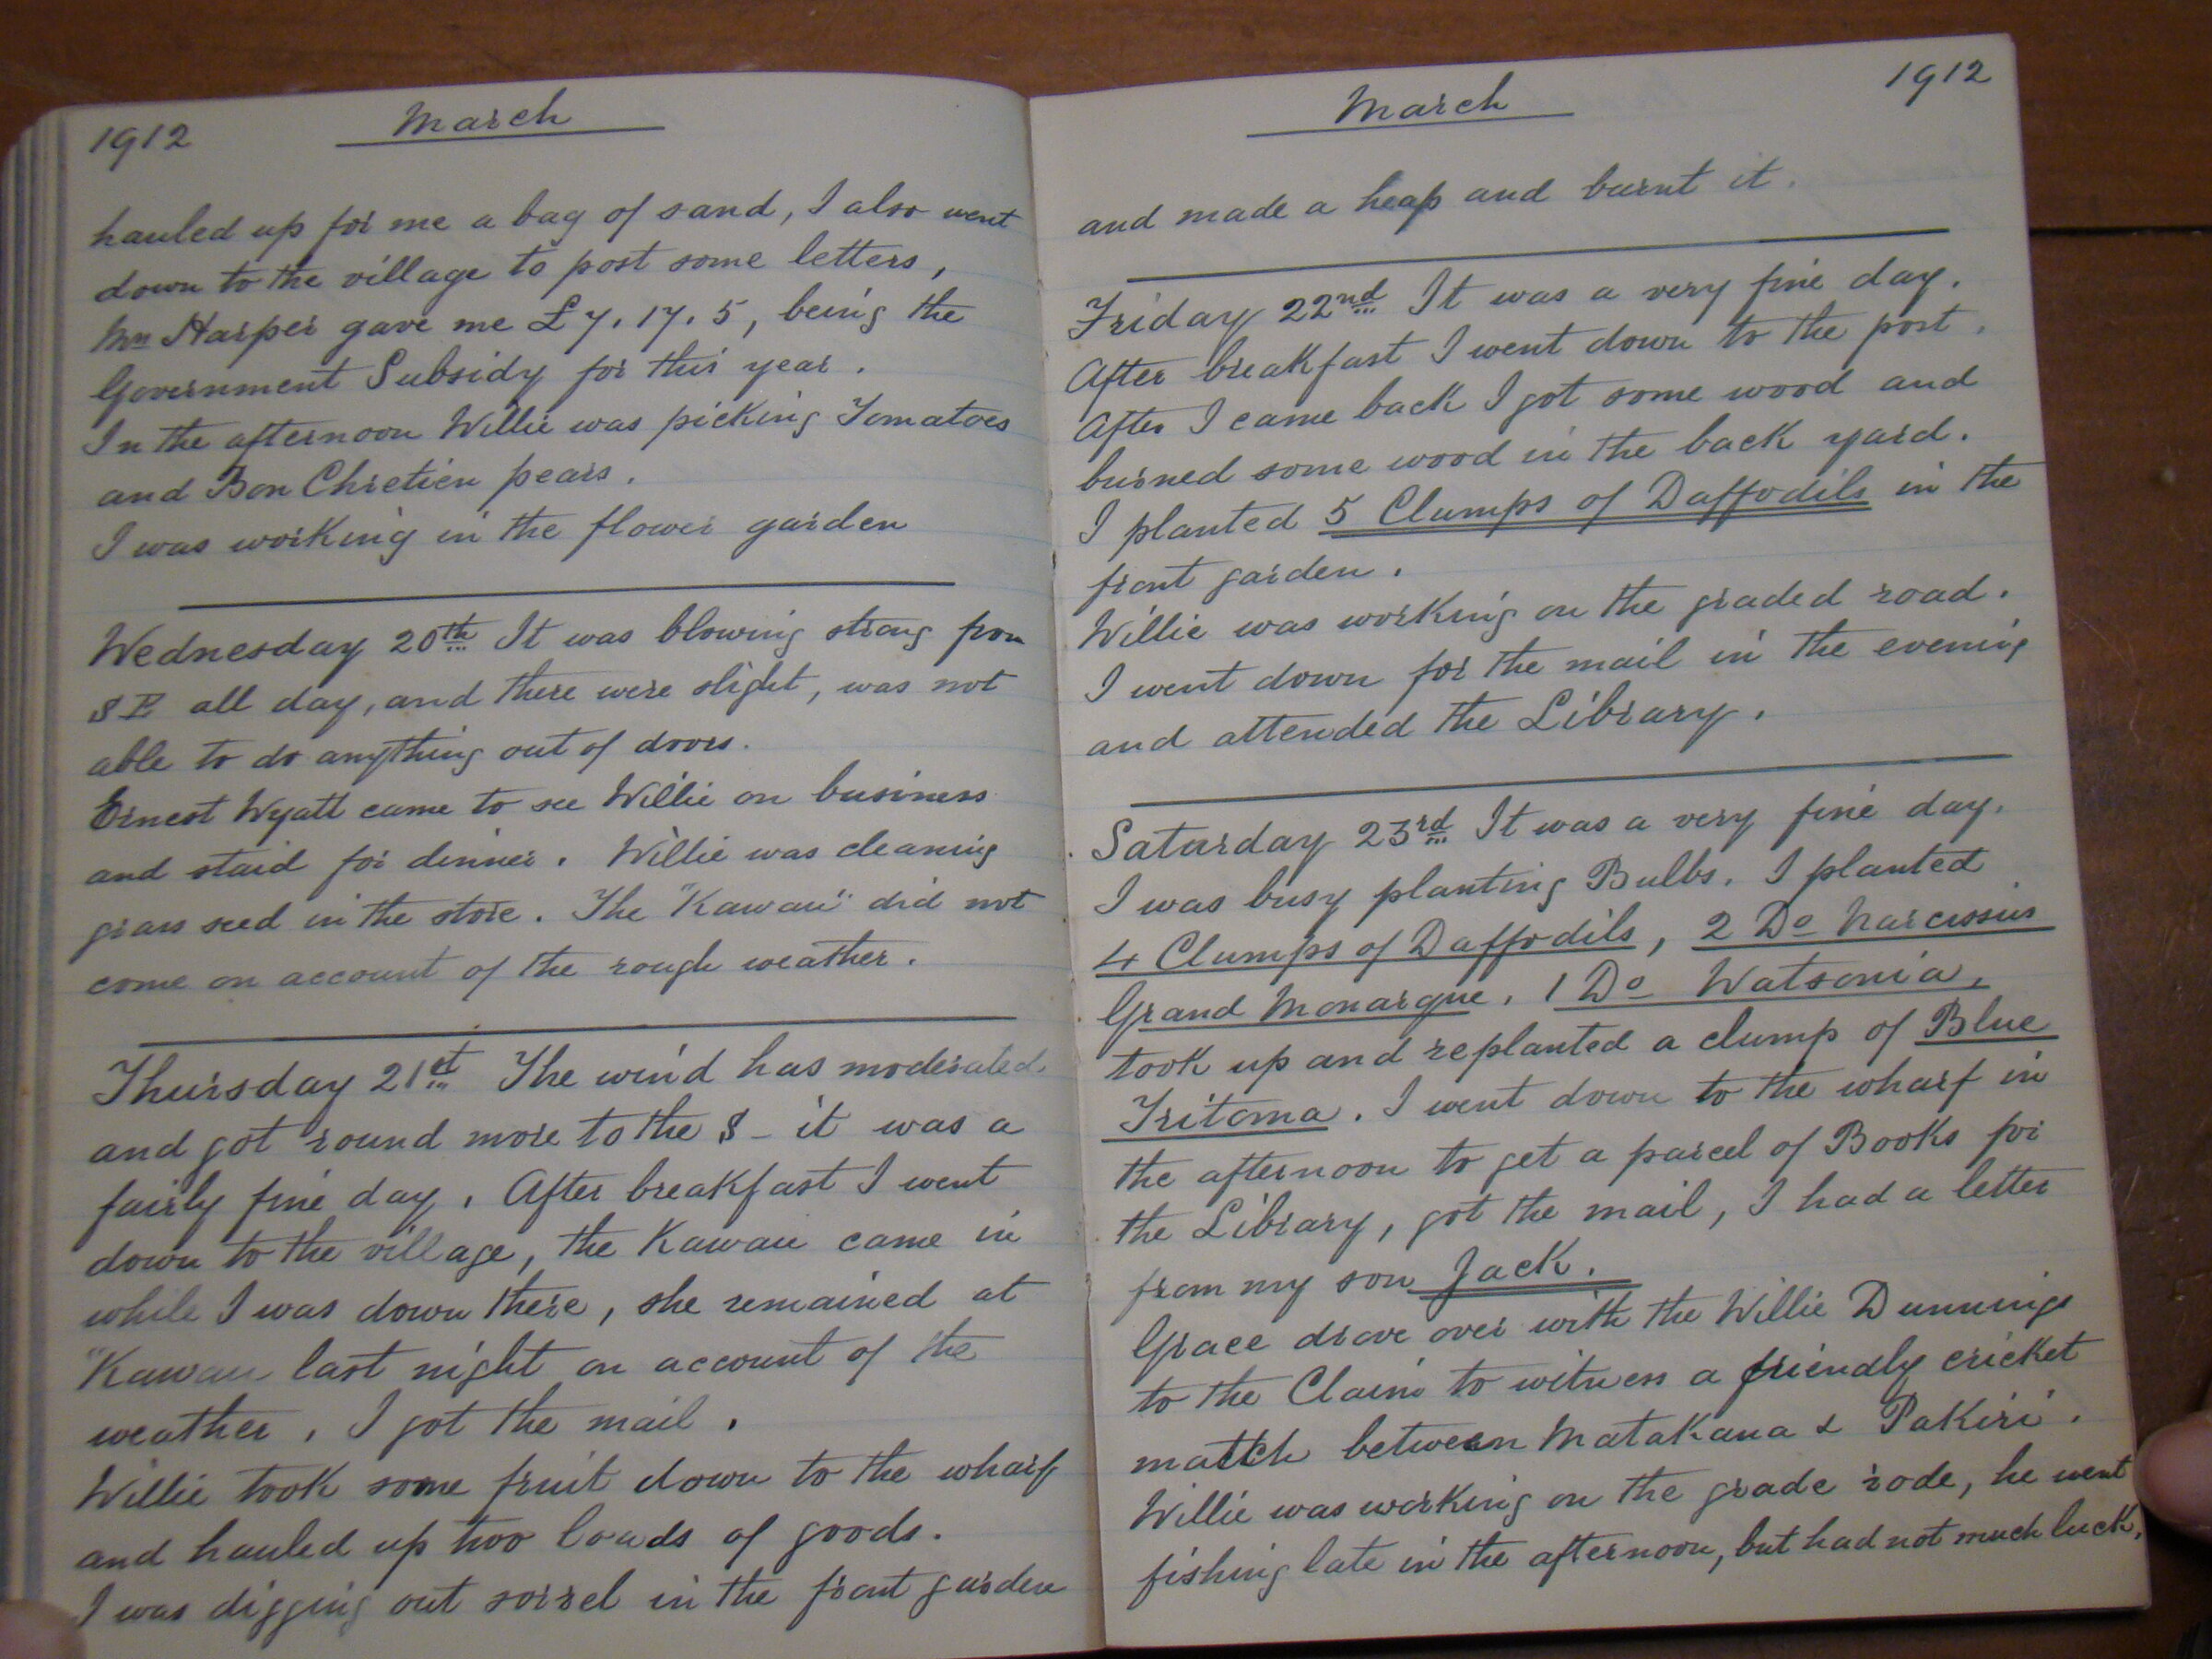 1912 March
hauled up for me a bag of sand, I also went
down to the village to post some letters,
Harper gave me £7.17.5, being the
Government Subsidy for this year.
In the afternoon Willie was picking Tomatoes
and Bon Chretien pears.
I was working in the flower garden
Wednesday 20th It was blowing strong from
SE all day, and there were slight, was not
able to do anything out of doors.
Ernest Wyatt came to see Willie on business
and staid for dinner. Willie was cleaning
grass seed in the store. The "Kawau" did not
come on account of the rough weather.
Thursday 21st The wind has moderated
and got round more to the S - it was a
fairly fine day. After breakfast I went
down to the village, the Kawau came in
while I was down there, she remained at
"Kawau last night on account of the
weather. I got the mail.
Willie took some fruit down to the wharf
and hauled up two loads of goods.
I was digging out sorrel in the front garden
March 1912
and made a heap and burnt it.
Friday 22nd It was a very fine day.
After breakfast I went down to the post.
After I came back I got some wood and
burned some wood in the back yard.
I planted 5 Clumps of Daffodils in the
front garden.
Willie was working on the graded road.
I went down for the mail in the evening
and attended the Library.
Saturday 23rd It was a very fine day.
I was busy planting Bulbs. I planted
4 Clumps of Daffodils, 2 Do Narcissus
Grand Monarque. 1 Do Watsonia,
took up and replanted a clump of Blue
Tritoma. I went down to the wharf in
the afternoon to get a parcel of Books for
the Library, got the mail, I had a letter
from my son Jack.
Grace drove over with the Willie Dunnings
to the Claim to witness a friendly cricket
match between Matakana & Pakiri.
Willie was working on the grade rode, he went
fishing late in the afternoon, but had not much luck,